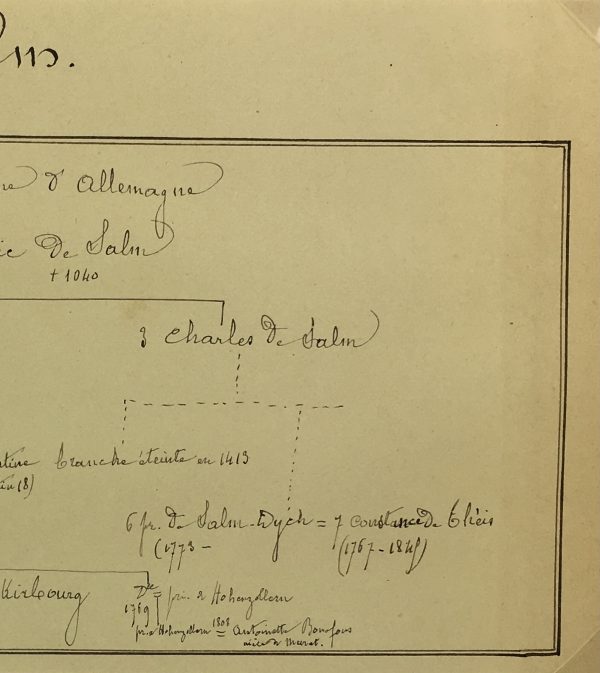 lm.
d'Allemagne
de Salm
+ 1040
3 Charles de Salm
branche éteinte en 1413
6 pr. de Salm-Dyck = 7 Constance de Théis
(1773 - (1767-1845)
Kirbourg
Dlle = prin. d Hohenzollern
1769
pr. d Hohenzollern 1808 = Antoinette Bonafous
nièce d Murat.